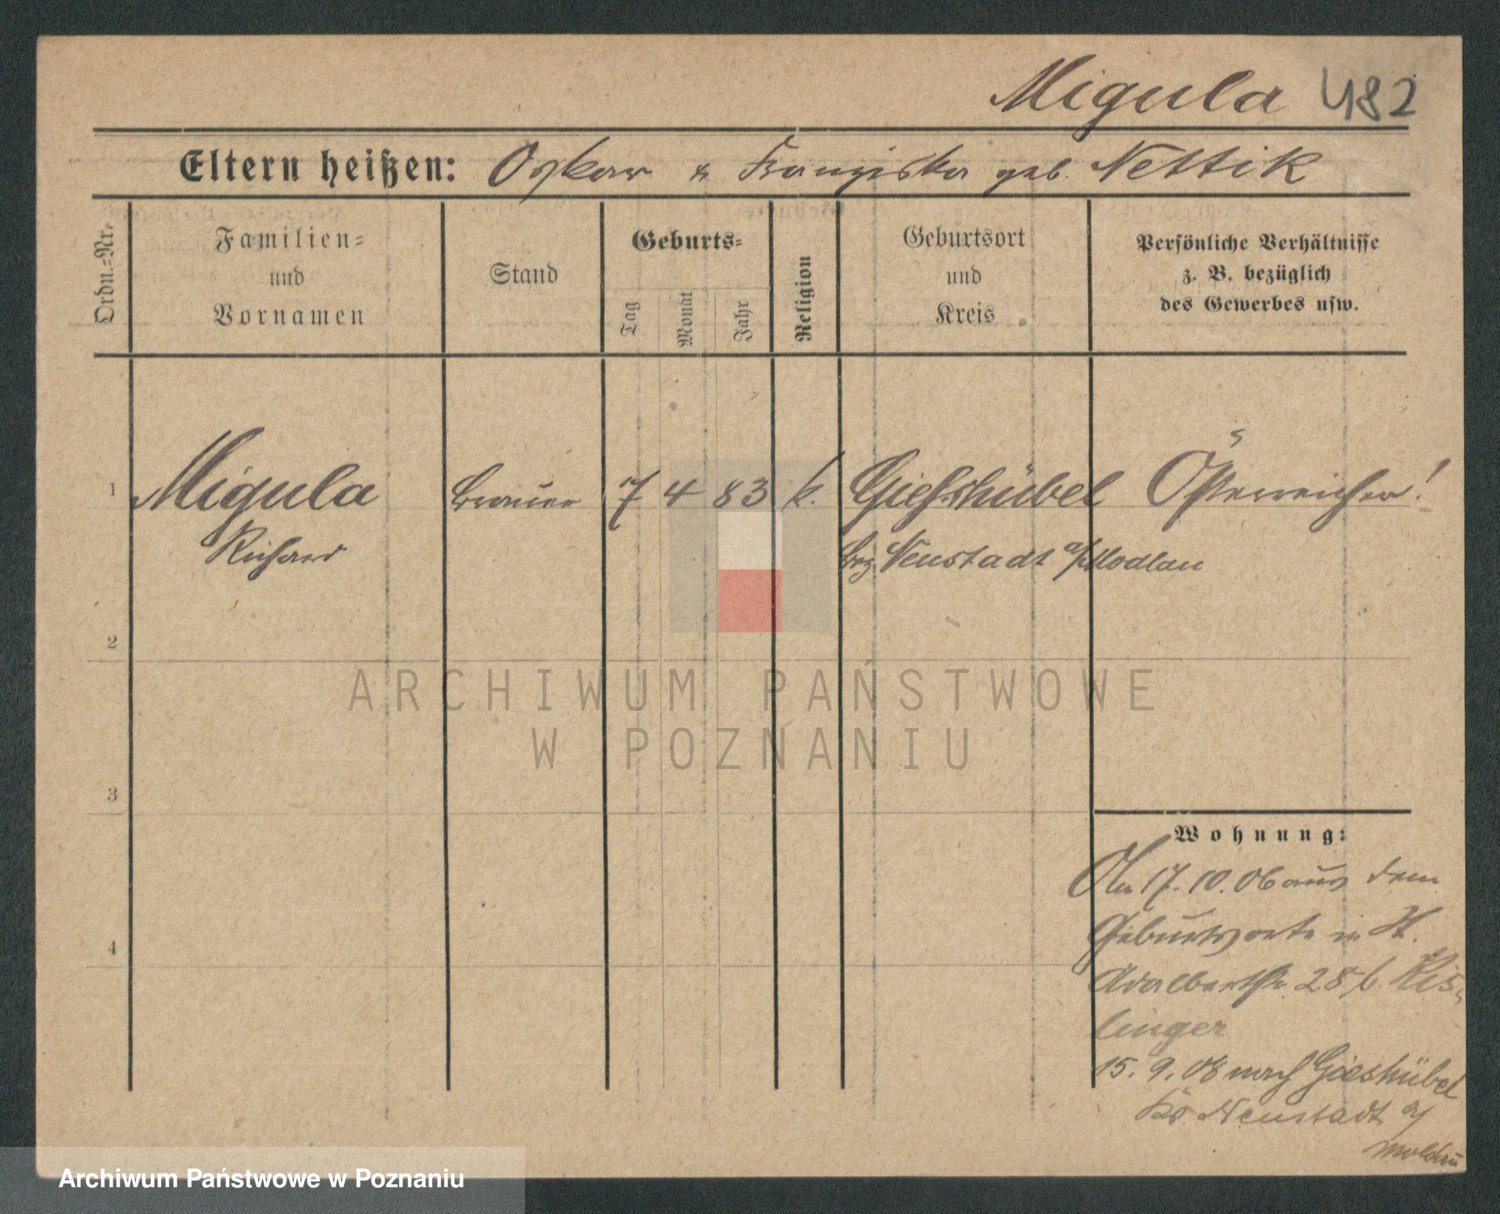 Migula 482
Eltern heißen: Oskar u Franziska geb. Nettik
Ordn.-Nr.
Familien-
und
Vornamen
Stand
Geburts-
Tag
Monat
Jahr
Religion
Geburtsort
und
Kreis
Persönliche Verhältnisse
z. B. bezüglich
des Gewerbes usw.
1 Migula Brauer 7 4 83 k. Gieshübel Österreicher!
Richard Bez. Neustadt a/Modlau
2
ARCHIWUM PAŃSTWOWE
W POZNANIU
3
Wohnung:
Am 17. 10. 06 aus dem
Geburtsorte in St.
4
Adalbertstr. 28 b. Kis-
linger
15. 9. 08 nach Gieshübel
Neustadt a/
Archiwum Państwowe w Poznaniu